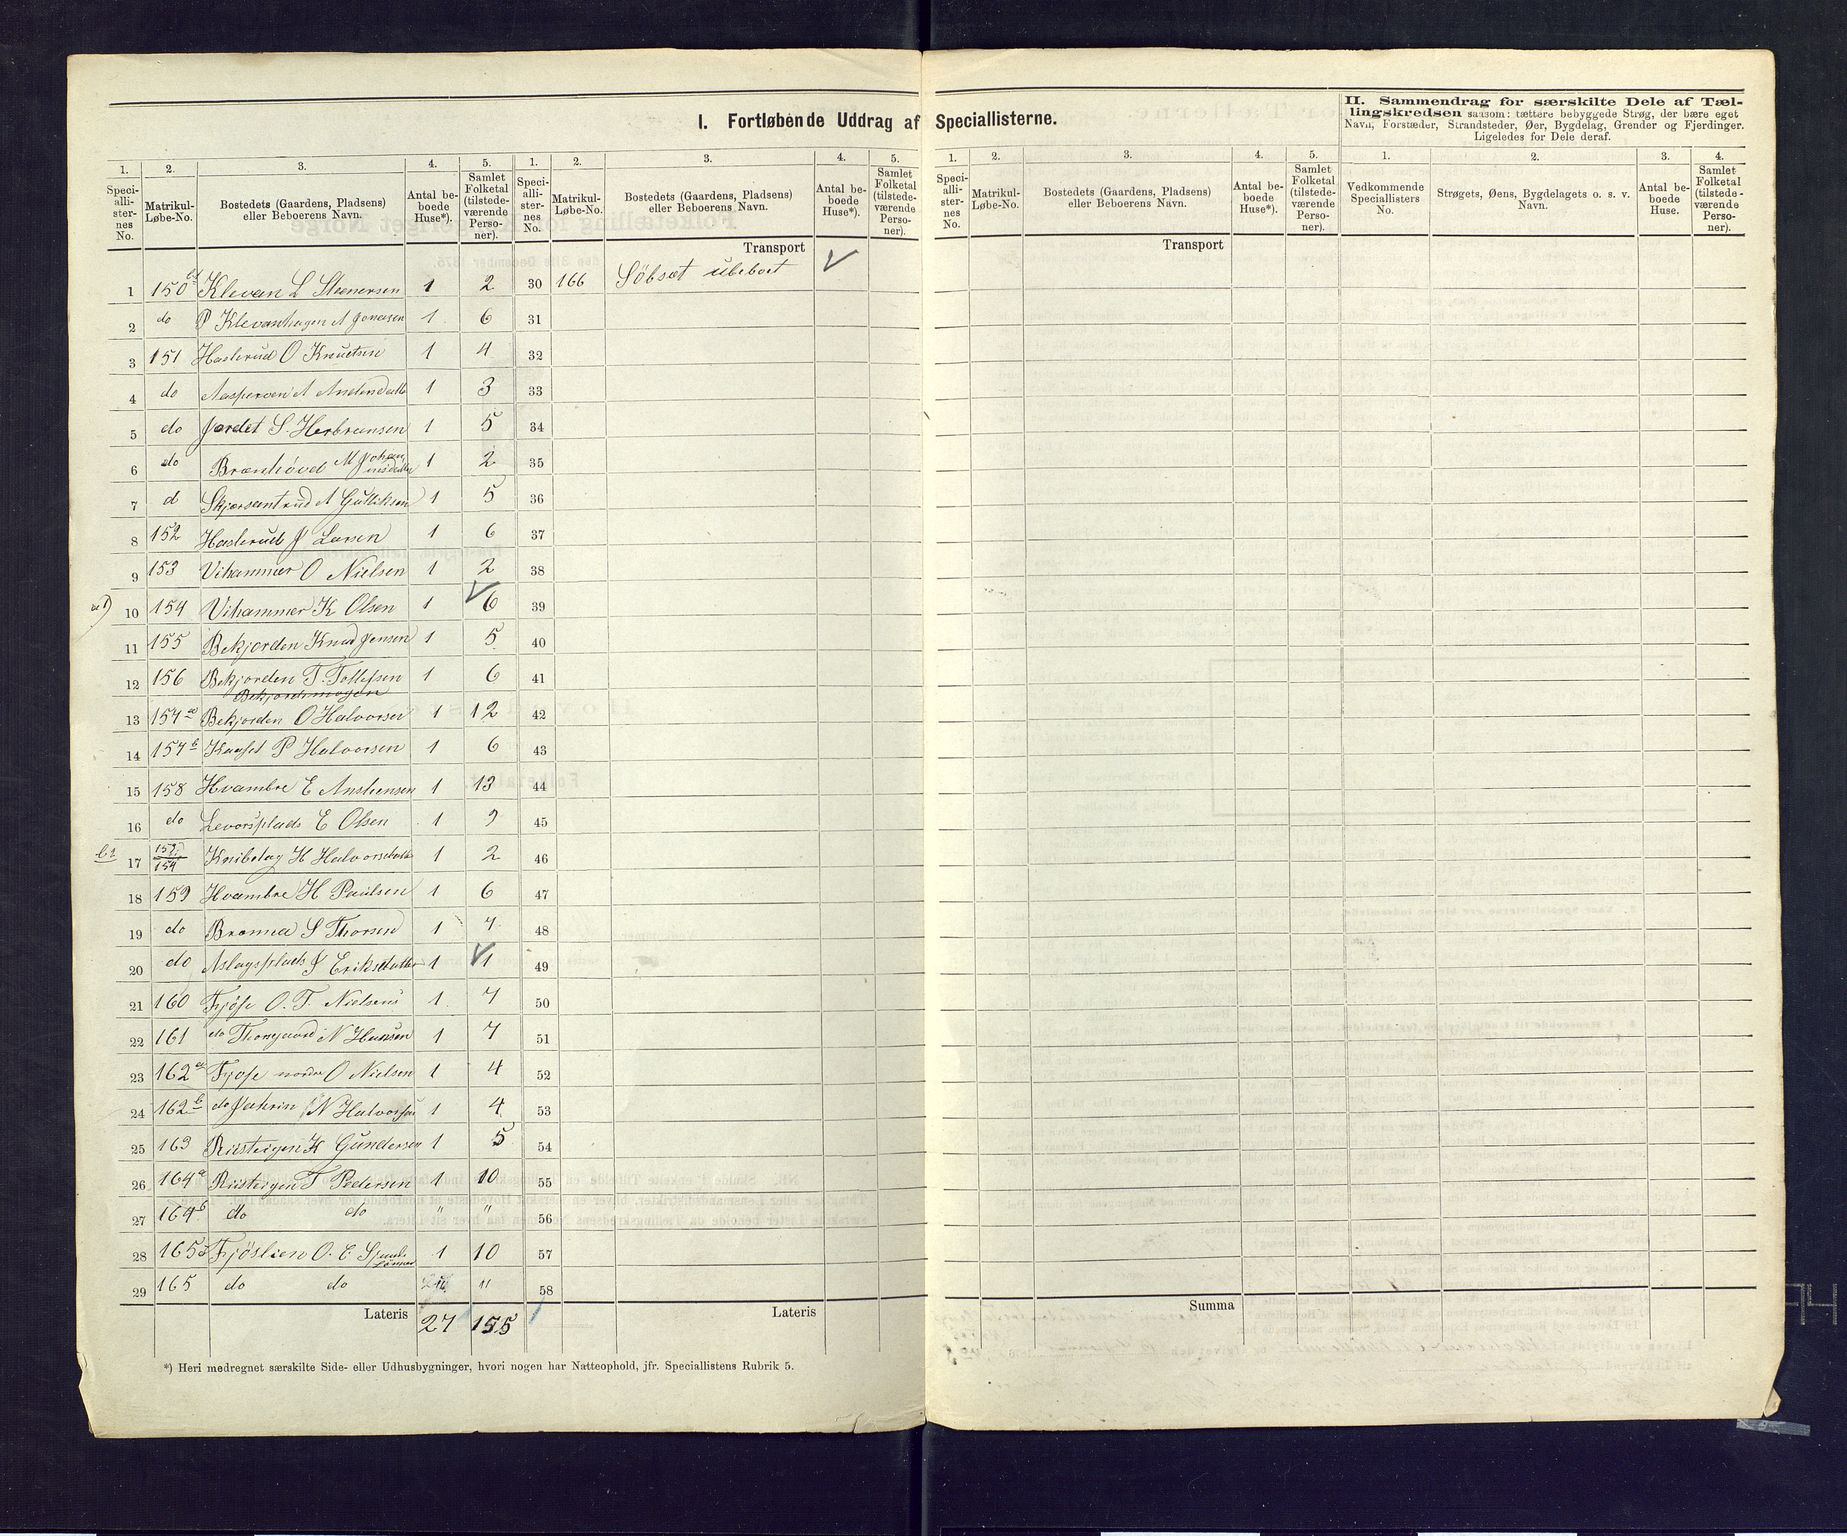 I. Fortløbende Uddrag af Speciallisterne.
II. Sammendrag for særskilte Dele af Tæl-
lingskredsen saasom: tættere bebyggede Strøg, der bære eget
Navn, Forstæder, Strandsteder, Øer, Bygdelag, Grender og Fjerdinger.
Ligeledes for Dele deraf.
1. 2. 3. 4. 5. 1. 2. 3. 4. 5. 1. 2. 3. 4. 5. 1. 2. 3. 4.
Speci-alli-ster-nes No. Matrikul-Løbe-No. Bostedets (Gaardens, Pladsens) eller Beboerens Navn. Antal be-boede Huse*). Samlet Folketal (tilstede-værende Perso-ner).
Speci-alli-ster-nes No. Matrikul-Løbe-No. Bostedets (Gaardens, Pladsens) eller Beboerens Navn. Antal be-boede Huse*). Samlet Folketal (tilstede-værende Perso-ner).
Speci-alli-ster-nes No. Matrikul-Løbe-No. Bostedets (Gaardens, Pladsens) eller Beboerens Navn. Antal be-boede Huse*). Samlet Folketal (tilstede-værende Perso-ner).
Vedkommende Speciallisters No. Strøgets, Øens, Bygdelagets o. s. v. Navn. Antal be-boede Huse. Samlet Folketal (tilstede-værende Perso-ner).
Transport Transport
1 150 Klevan L Steenersen 1 2 30 166 Söbsæt ubeboet
2 do P Klevanhagen A Jonasen 1 6 31
3 151 Haslerud O Knudsen 1 4 32
4 do A 1 3 33
5 do Jordet S. Herbransen 1 5 34
6 do Brænhövd M Johannisdatter 1 2 35
7 d A Gulliksen 1 5 36
8 152 Haslerud J Larsen 1 6 37
9 153 Vihammer O Nielsen 1 2 38
10 154 Vihammer K Olsen 1 6 39
11 155 Bekjorden Knud Jensen 1 5 40
12 156 Bekjorden T. Tollefsen 1 6 41
13 157a Bekjorden O Halvorsen 1 12 42
14 157b P Halvorsen 1 6 43
15 158 Hvambre E Anstensen 1 13 44
16 do Levorsplads E Olsen 1 9 45
17 154 Knibelag H Halvorsdatter 1 2 46
18 159 Hvambre H Paulsen 1 6 47
19 do S Thorsen 1 7 48
20 do Aslagsplads J Eriksdatter 1 1 49
21 160 Fjöse O. T. Nielsens 1 7 50
22 161 do N Hansen 1 7 51
23 162a Fjöse nordre O Nielsen 1 4 52
24 162b do N Halvorsen 1 4 53
25 163 Risteigen H Gundersen 1 5 54
26 164a Risteigen T Pedersen 1 10 55
27 164b do do " " 56
28 165 Fjöslien O. E. 1 10 57
29 165 do do " 58
Lateris 27 155 Lateris Summa
*) Heri medregnet særskilte Side- eller Udhusbygninger, hvori nogen har Natteophold, jfr. Speciallistens Rubrik 5.